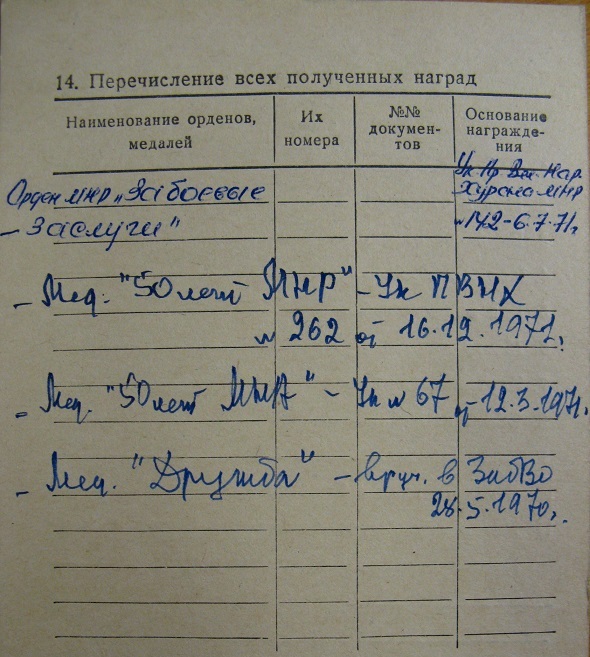 14. Перечисление всех полученных наград
Наименование орденов, медалей
Их номера
№№ докумен-тов
Основание награжде-ния
Орден МНР „За боевые
– Заслуги"
Ук. Пр. Вел. Нар.
Хурала МНР
№142-6.7.71г.
– Мед. "50 лет МНР" – Ук ПВНХ
№ 262 от 16.12.1971г.
– Мед. "50 лет МНА" – Ук № 67 от 12.3.1971г.
– Мед. "Дружба" – вруч. в ЗабВО
28.5.1970г.